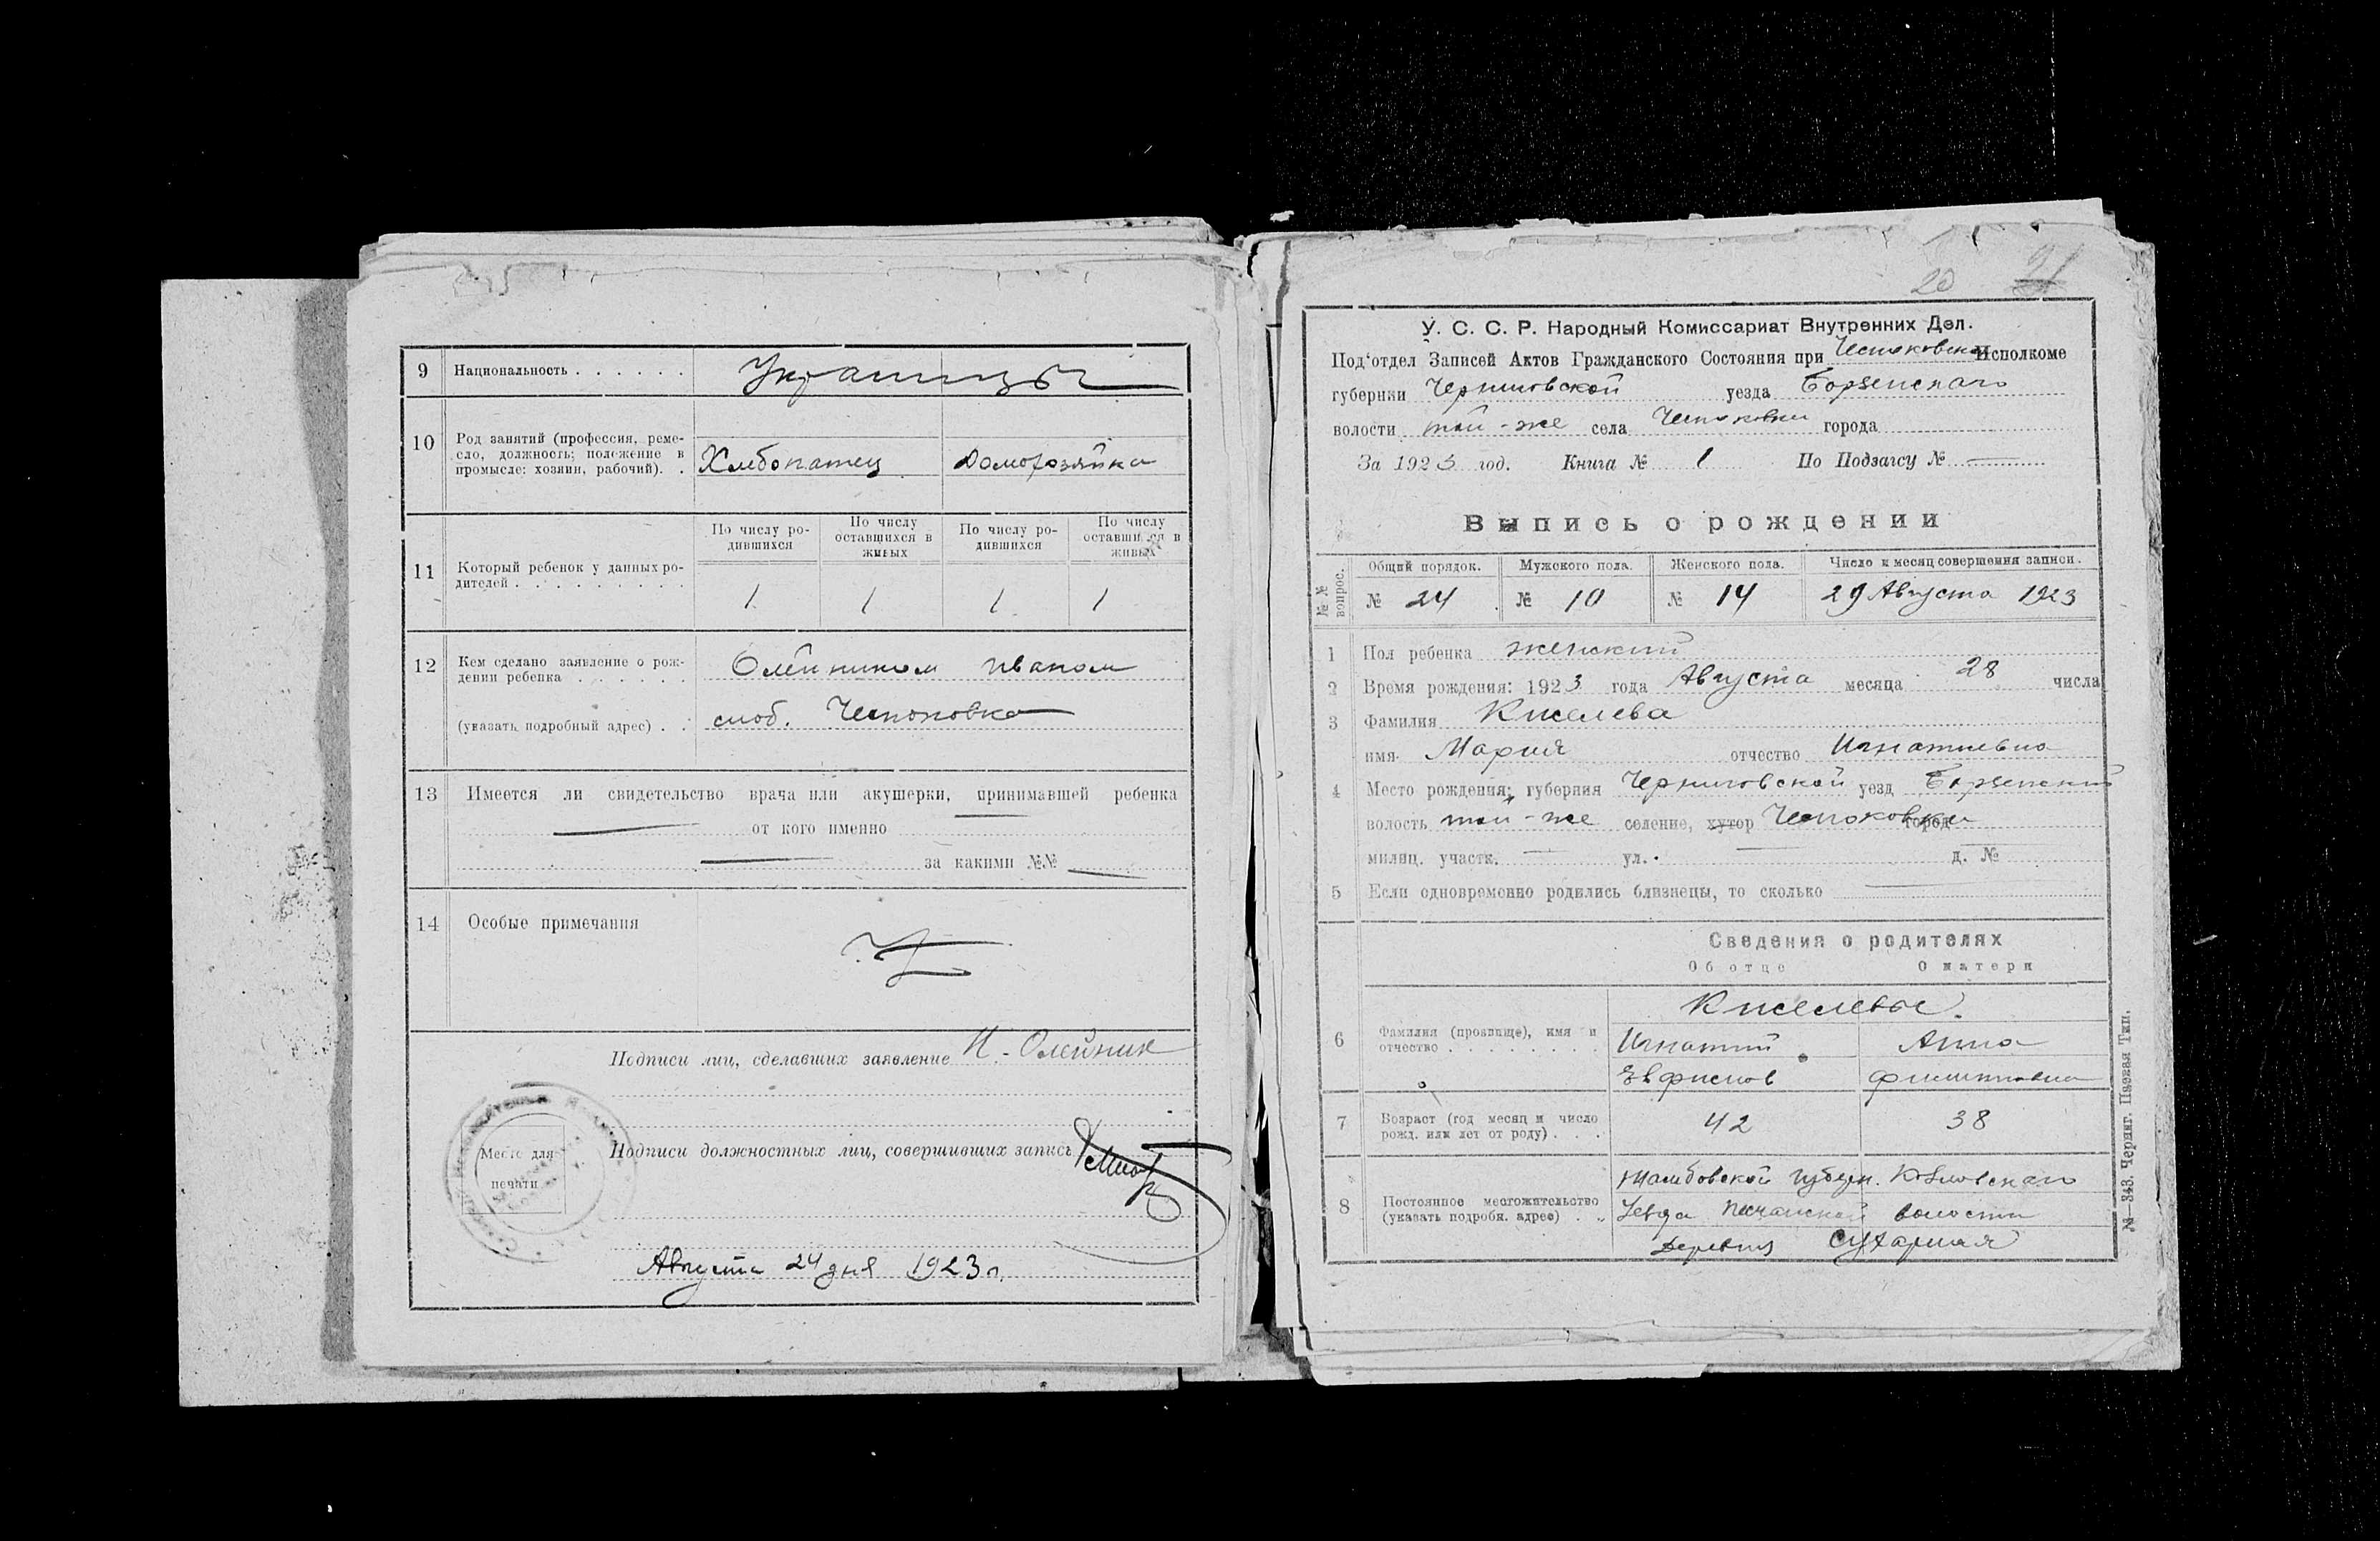 9 Национальность . . . . . . Украинцы
10 Род занятий (профессия, реме-
сло, должность; положение в
промысле: хозяин, рабочий). . Хлебопашец Домохозяйка
По числу ро-
дившихся По числу
оставшихся в
живых По числу ро-
дившихся По числу
оставшихся в
живых
11 Который ребенок у данных ро-
дителей . . . . . . . . . . 1 1 1 1
12 Кем сделано заявление о рож-
дении ребенка . . . . . . Олейником Иваном
(указать подробный адрес) . . слоб. Чесноковка
13 Имеется ли свидетельство врача или акушерки, принимавшей ребенка
от кого именно
за какими №№
14 Особые примечания
Подписи лиц, сделавших заявление И. Олейник
Место для
печати
Подписи должностных лиц, совершивших запись
Августа 24 дня 1923 г.
20 21
У. С. С. Р. Народный Комиссариат Внутренних Дел.
Под‘отдел Записей Актов Гражданского Состояния при Исполкоме
губернии Черниговской уезда Борзенскаго
волости той-же села Чесноковки города
За 1923 год. Книга № 1 По Подзагсу № —
Выпись о рождении
№ № вопрос. Общий порядок. Мужского пола. Женского пола. Число и месяц совершения записи.
№ 24 № 10 № 14 29 Августа 1923
1 Пол ребенка женский
2 Время рождения: 1923 года Августа месяца 28 числа
3 Фамилия Киселева
имя Мария отчество Игнатиевна
4 Место рождения: губерния Черниговской уезд Борзенский
волость той-же селение, хутор Чесноковки город
милиц. участк. ул. д. №
5 Если одновременно родились близнецы, то сколько
Сведения о родителях
Об отце О матери
Киселевы.
6 Фамилия (прозвище), имя и
отчество . . . . . . . . Игнатий Анна
Евфисиов Филиповна
7 Возраст (год месяц и число
рожд. или лет от роду) . . . 42 38
8 Постоянное местожительство
(указать подробн. адрес) . . Тамбовской губерн. Козловскаго
Уезда волости
Деревня Сухарная
№—343. Черниг. Цязвая Тип.